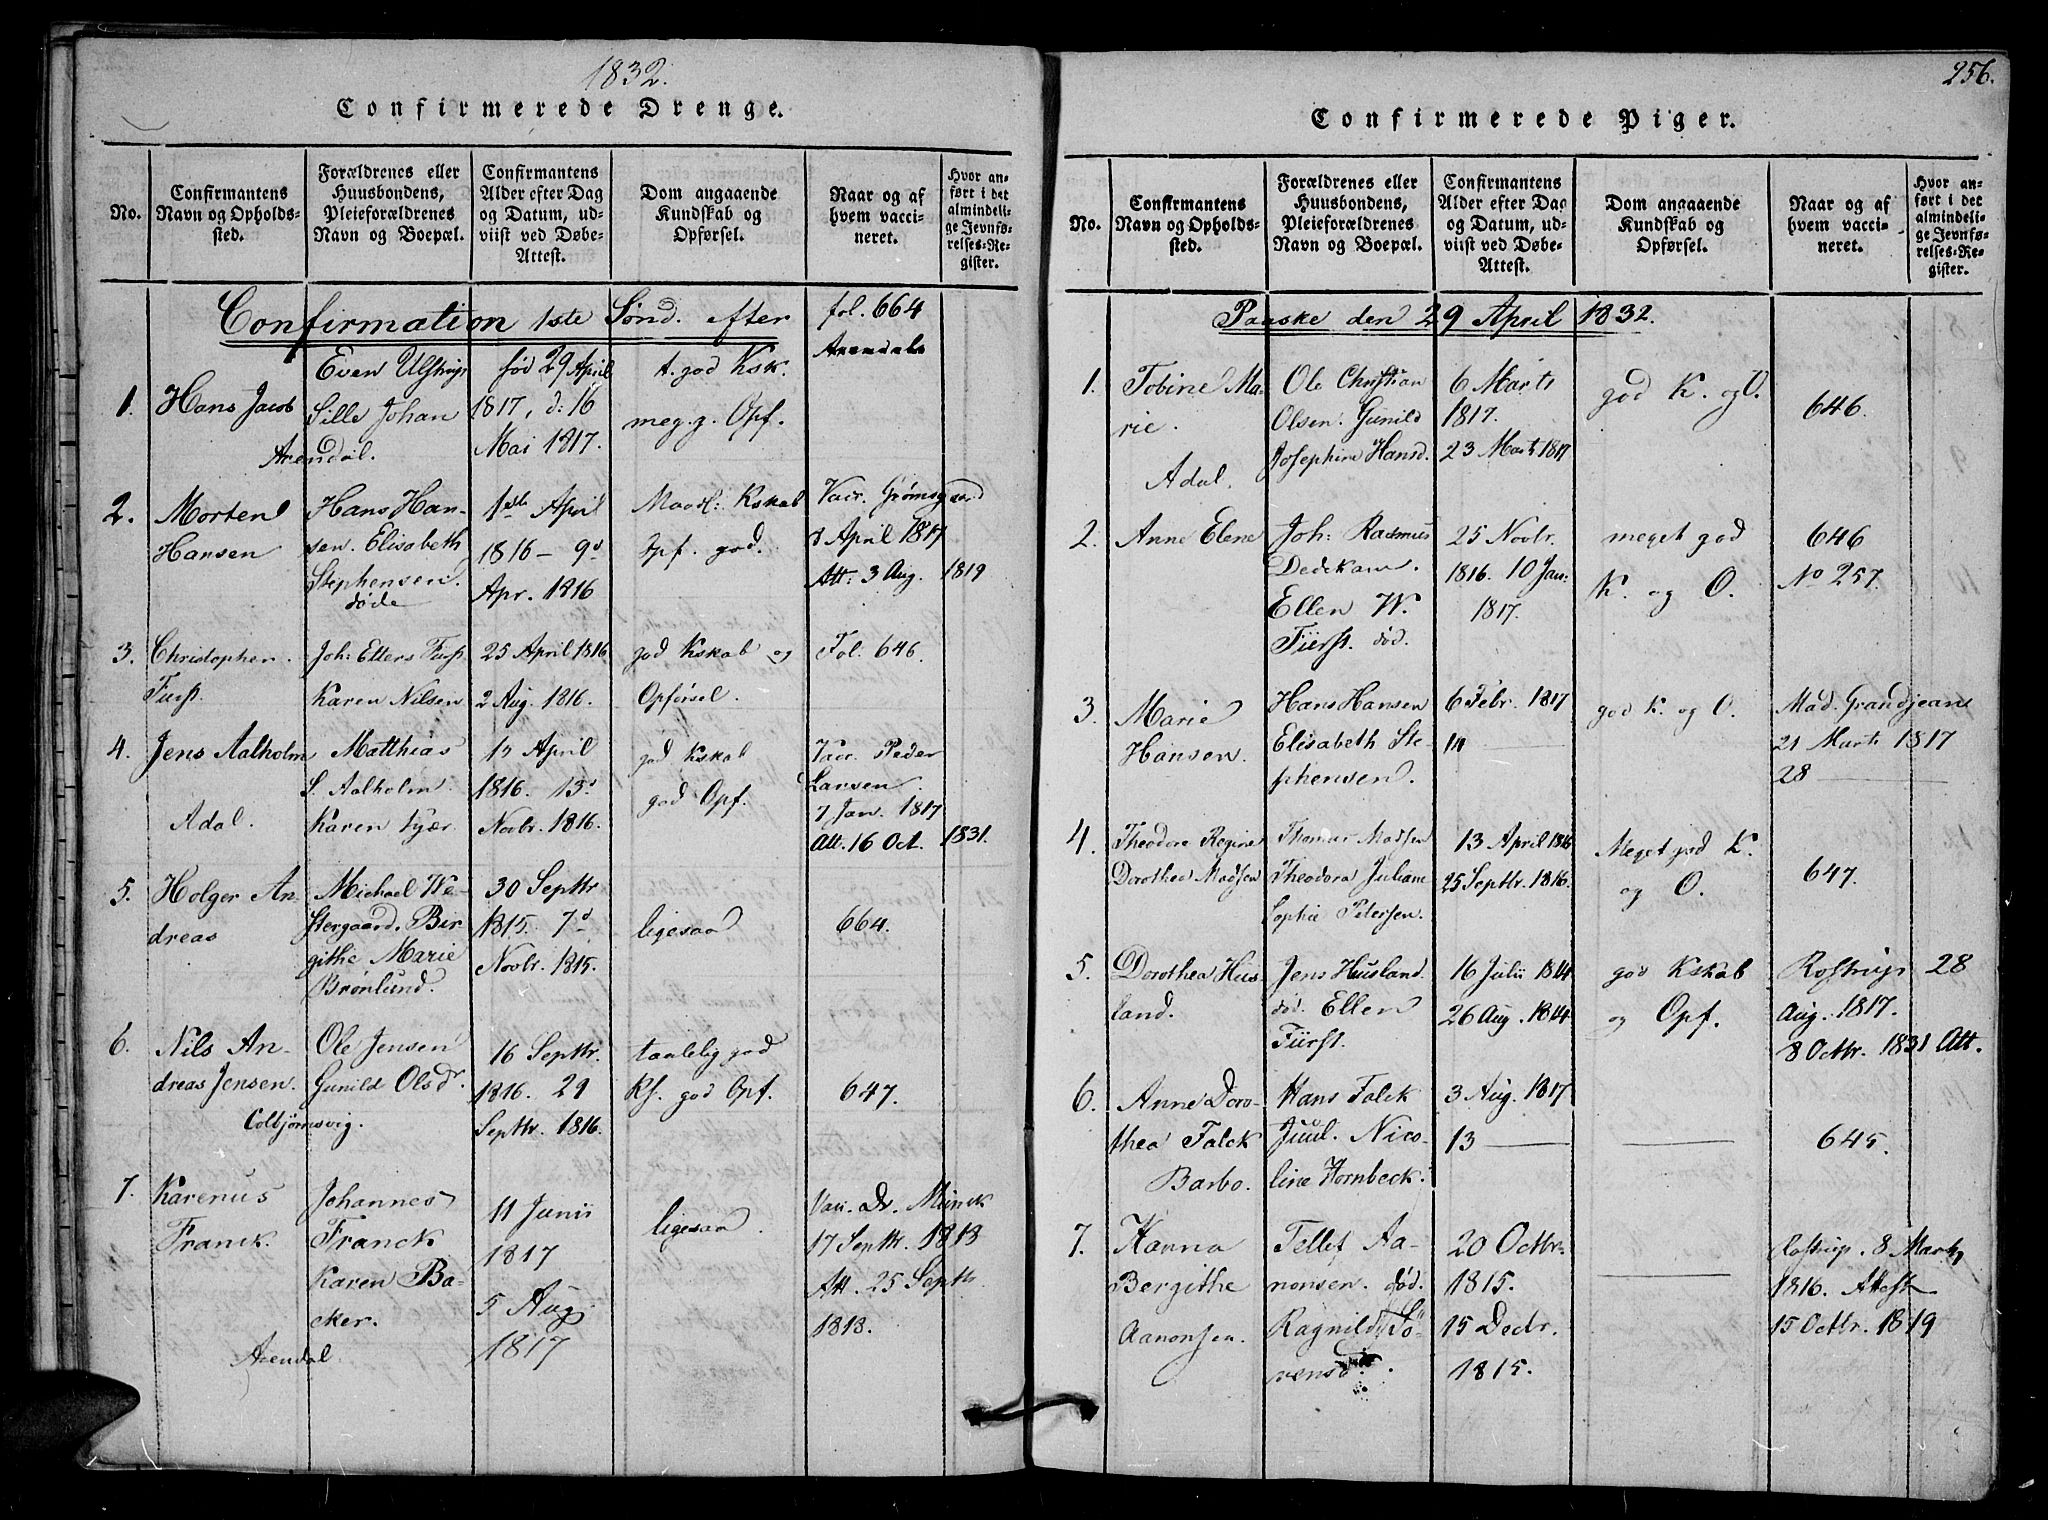 1832.
Confirmerede Drenge.
No.
Confirmantens
Navn og Opholds-
sted.
Forældrenes eller
Huusbondens,
Pleieforældrenes
Navn og Boepæl.
Confirmantens
Alder efter Dag
og Datum, ud-
viist ved Døbe-
Attest.
Dom angaaende
Kundskab og
Opførsel.
Naar og af
hvem vacci-
neret.
Hvor an-
ført i det
almindeli-
ge Jevnfø-
relses-Re-
gister.
Confirmation 1ste Sönd. efter
fol. 664
Arendal
1.
Hans Jacob
Arendal.
Even Ulstrup
Sille Johan
fød 29 April
1817, d: 16
Mai 1817.
t. god Ksk.
meg. g. Opf.
2.
Morten
Hansen
Hans Han-
sen. Elisabeth
Stephensen.
døde
1ste April
1816 - 9d
Apr. 1816
Maadl: Kskab
Opf. god.
Vacc. Grømsgaard
8 April 1817
Att: 3 Aug. 1819
3.
Christopher
Furst.
Joh: Ellers Furst
Karen Nilsen
25 April 1816
2 Aug. 1816.
god Kskab og
Opførsel.
Fol. 646.
4.
Jens Aalholm
Adal.
Matthias
S. Aalholm.
Karen Kjær.
17 April
1816. 13d
Novbr. 1816.
god Kskab
god Opf.
Vacc. Peder
Larsen.
7 Jan. 1817
Att. 16 Oct. 1831.
5.
Holger An-
dreas
Michael We-
stergaard. Bir-
githe Marie
Brønlund.
30 Septbr
1815. 7d
Novbr. 1815.
ligesaa
664.
6.
Nils An-
dreas Jensen.
Colbjørnsvig.
Ole Jensen
Gunild Olsdr.
16 Septbr.
1816. 29
Septbr. 1816.
taalelig god
Ks. god Opf.
647.
7.
Karenus
Franck.
Arendal.
Johannes
Franck
Karen Ba-
cker.
11 Junii
1817
5 Aug.
1817
ligesaa.
Vacc. Dr. Munck
17 Septbr. 1818
Att. 25 Septbr.
1818.
256.
Confirmerede Piger.
No.
Confirmantens
Navn og Opholds-
sted.
Forældrenes eller
Huusbondens,
Pleieforældrenes
Navn og Boepæl.
Confirmantens
Alder efter Dag
og Datum, ud-
viist ved Døbe-
Attest.
Dom angaaende
Kundskab og
Opførsel.
Naar og af
hvem vacci-
neret.
Hvor an-
ført i det
almindeli-
ge Jevnfø-
relses-Re-
gister.
Paaske den 29 April 1832.
1.
Tobine Ma-
rie.
Adal.
Ole Christian
Olsen. Gunild
Josephine Hansd.
6 Marts
1817.
23 Marts 1817
god K. og O.
646.
2.
Anne Elene
Joh: Rasmus
Dedekam.
Ellen W.
Fürst. död.
25 Novbr.
1816. 10 Jan:
1817.
meget god
K. og O.
646
No 257.
3.
Marie
Hansen.
Hans Hansen
Elisabeth Ste-
phensen.
6 Febr. 1817
14 —
god K. og O.
Mad. Grandjeans
21 Marts 1817
28 —
4.
Theodore Regine
Dorothea Madsen
Thomas Madsen
Theodora Juliane
Sophie Petersen.
13 April 1816
25 Septbr. 1816.
Meget god K.
og O.
647.
5.
Dorothea Hus-
land.
Jens Husland.
död. Ellen
Fürst.
16 Julii 1814
26 Aug. 1814.
god Kskab
og Opf.
Rostrup 28
Aug. 1817.
8 Octbr. 1831 Att.
6.
Anne Doro-
thea Falck
Barbo.
Hans Falck
Juul. Nico-
line Hornbeck.
3 Aug. 1817
13 —
—
645.
7.
Hanna
Bergithe
Aanonsen.
Tellef Aa-
nonsen. död.
Ragnild Sö-
rensd.
20 Octbr.
1815.
15 Decbr.
1815.
—
Rostrup. 8 Marts
1816. Attest
15 Octbr. 1819